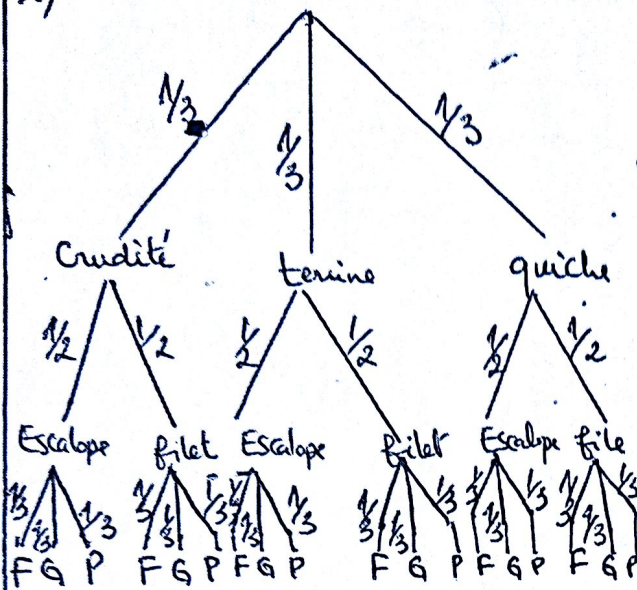 1/3 1/3 1/3
Crudité terrine quiche
1/2 1/2 1/2 1/2 1/2 1/2
Escalope filet Escalope filet Escalope file
1/3 1/3 1/3 1/3 1/3 1/3 1/3 1/3 1/3 1/3 1/3 1/3 1/3 1/3 1/3 1/3 1/3 1/3
F G P F G P F G P F G P F G P F G P